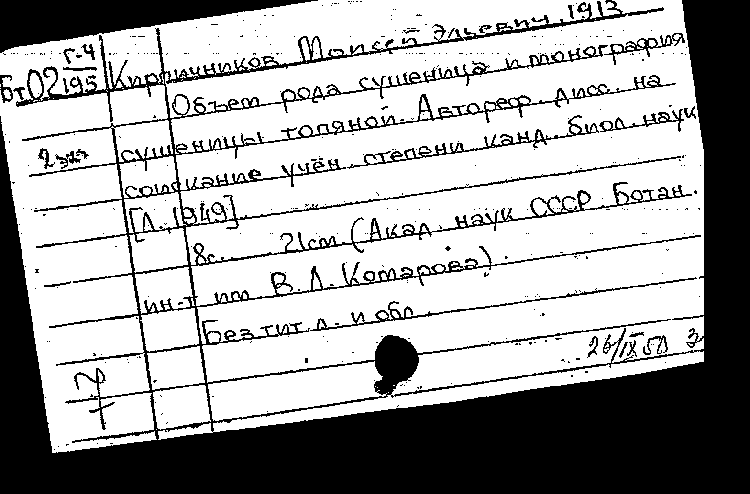 Г-4
Бт02 195
Кирпичников, Моисей Эльевич, 1913
Объем рода сушеница и монография
2 экз
сушеницы топяной. Автореф. дисс. на
соискание учён. степени канд. биол. наук
[Л., 1949].
8с. 21см (Акад. наук СССР. Ботан.
ин-т им. В. Л. Комарова).
Без тит. л. и обл.
26/IX 50 З